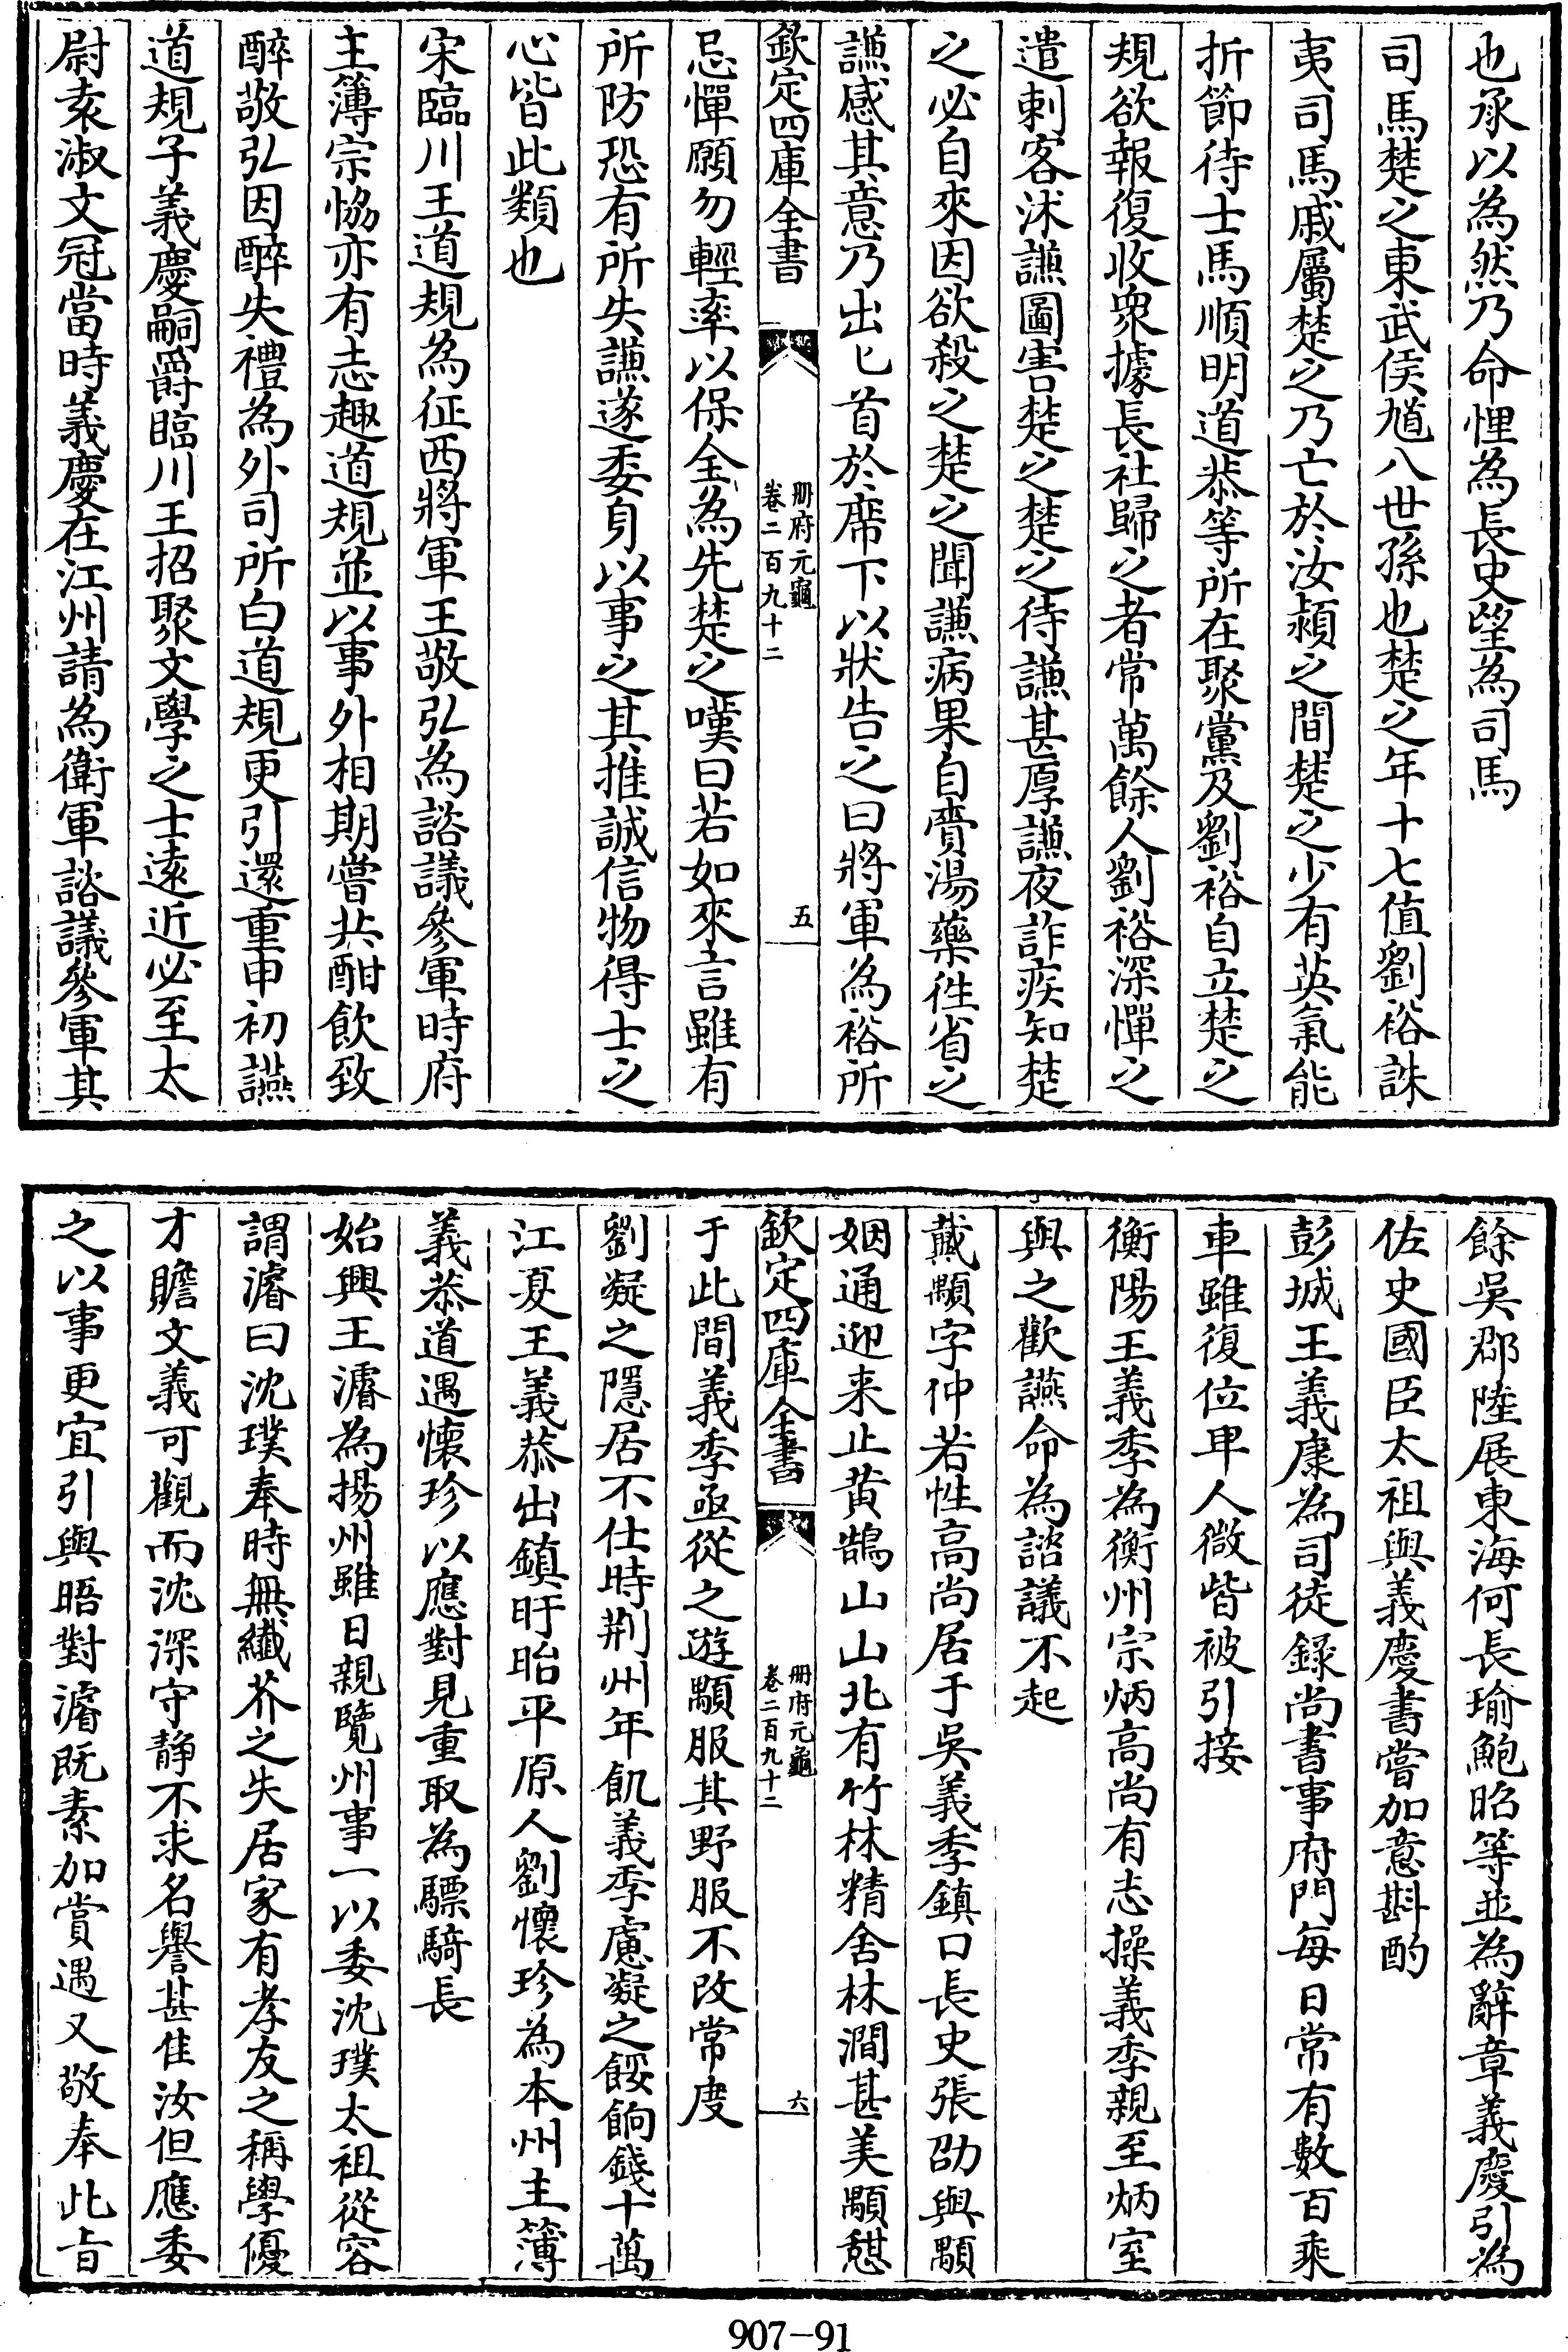 也承以為然乃命悝為長史望為司馬
司馬楚之東武侯馗八世孫也楚之年十七值劉裕誅
夷司馬戚屬楚之乃亡於汝潁之間楚之少有英氣能
折節待士馬順明道恭等所在聚黨及劉裕自立楚之
規欲報復收衆據長社歸之者常萬餘人劉裕深憚之
遣刺客沭謙圖害楚之楚之待謙甚厚謙夜詐疾知楚
之必自來因欲殺之楚之聞謙病果自齎湯藥徃省之
謙感其意乃出匕首於席下以狀告之曰將軍為裕所
欽定四庫全書
冊府元龜
卷二百九十二
五
忌憚願勿輕率以保全為先楚之嘆曰若如來言雖有
所防恐有所失謙遂委身以事之其推誠信物得士之
心皆此類也
宋臨川王道規為征西將軍王敬弘為諮議參軍時府
主簿宗恊亦有志趣道規並以事外相期嘗共酣飲致
醉敬弘因醉失禮為外司所白道規更引還重申初讌
道規子義慶嗣爵臨川王招聚文學之士遠近必至太
尉袁淑文冠當時義慶在江州請為衛軍諮議參軍其
餘吳郡陸展東海何長瑜鮑昭等並為辭章義慶引為
佐史國臣太祖與義慶書嘗加意斟酌
彭城王義康為司徒録尚書事府門每日常有數百乘
車雖復位卑人微皆被引接
衡陽王義季為衡州宗炳高尚有志操義季親至炳室
與之歡讌命為諮議不起
戴顒字仲若性高尚居于吳義季鎮口長史張劭與顒
姻通迎来止黄鵠山山北有竹林精舍林澗甚美顒憇
欽定四庫全書
冊府元龜
卷二百九十二
六
于此間義季亟從之遊顒服其野服不改常度
劉凝之隱居不仕時荆州年飢義季慮凝之餒餉錢十萬
江夏王義恭出鎮盱眙平原人劉懷珍為本州主簿
義恭道遇懷珍以應對見重取為驃騎長
始興王濬為揚州雖日親覽州事一以委沈璞太祖從容
謂濬曰沈璞奉時無纖芥之失居家有孝友之稱學優
才贍文義可觀而沈深守静不求名譽甚佳汝但應委
之以事更宜引與晤對濬既素加賞遇又敬奉此旨
907-91